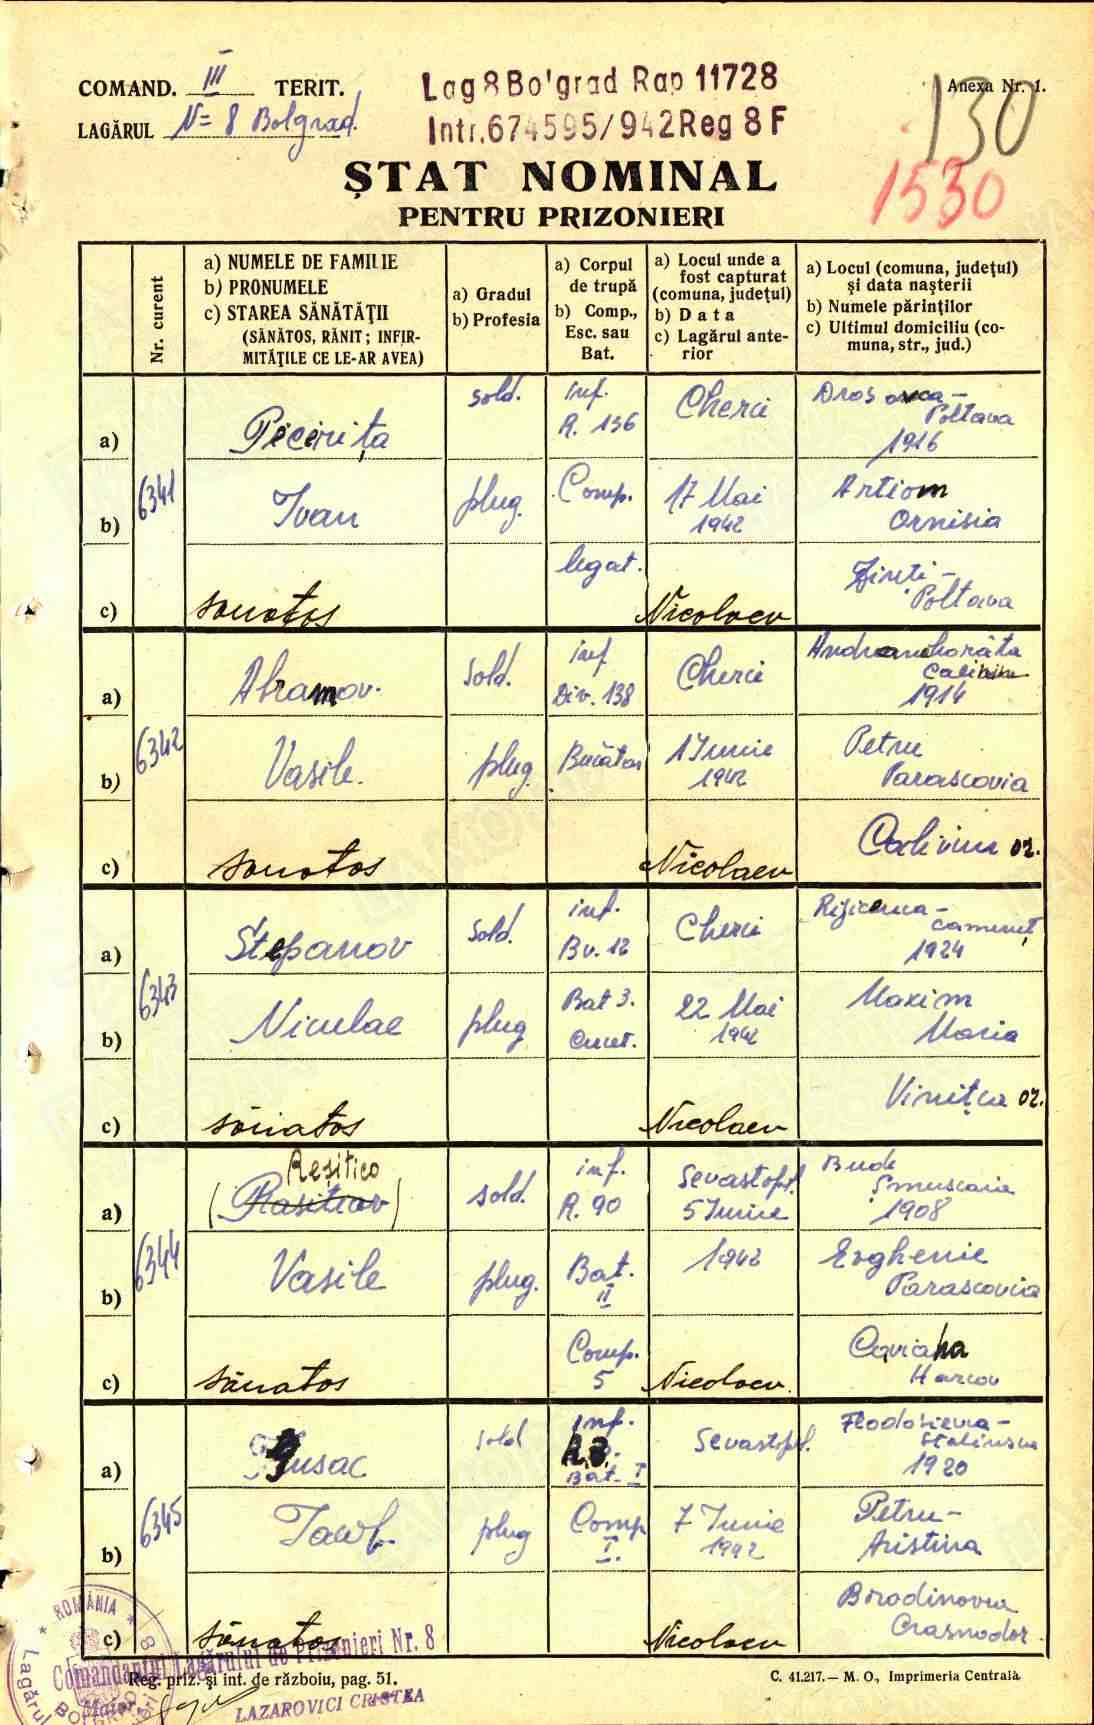 COMAND. III TERIT.
LAGĂRUL N= 8 Bolgrad.
Lag 8 Bo'grad Rap 11728
Intr. 674595/942 Reg 8 F
Anexa Nr. 1.
130
1530
ŞTAT NOMINAL
PENTRU PRIZONIERI
Nr. curent
a) NUMELE DE FAMILIE
b) PRONUMELE
c) STAREA SĂNĂTĂŢII
(SĂNĂTOS, RĂNIT; INFIR-
MITĂŢILE CE LE-AR AVEA)
a) Gradul
b) Profesia
a) Corpul
de trupă
b) Comp.,
Esc. sau
Bat.
a) Locul unde a
fost capturat
(comuna, judeţul)
b) Data
c) Lagărul ante-
rior
a) Locul (comuna, judeţul)
şi data naşterii
b) Numele părinţilor
c) Ultimul domiciliu (co-
muna, str., jud.)
6341
a) Peceriţa
sold.
inf.
R. 136
Cherci
Poltava
1916
b) Ivan
plug.
Comp.
17 Mai
1942
Artiom
Ornisia
c) sănatos
legat.
Nicolaev
Poltava
6342
a) Abramov.
sold.
inf
Div. 138
Cherci
Calinin
1914
b) Vasile.
plug.
Bucătar
1 Iunie
1942
Petru
Parascovia
c) sănatos
Nicolaev
Calinin oz.
6343
a) Stepanov
sold.
inf.
Bv. 12
Cherci
cameneţ
1924
b) Niculae
plug
Bat 3.
Cercet.
22 Mai
1942
Maxim
Maria
c) sănatos
Nicolaev
Viniţca oz.
6344
Reşitico
a) (Rasiticov)
sold.
inf.
R. 90
Sevastopl.
5 Iunie
Bude
1908
b) Vasile
plug.
Bat.
II
1942
Evghenie
Parascovia
c) sănatos
Comp.
5
Nicolaev.
Harcov
6345
a) Gusac
sold
inf.
Bat. I
Sevastopl.
Feodosievca-
Stalinsca
1920
b)
plug
Comp
I.
7 Iunie
1942
Petru-
Aristina
c) sănatos
Nicolaev
Borodinovca
Crasnodor
ROMÂNIA
Comandantul Lagărului de Prizonieri Nr. 8
Maior
LAZAROVICI CRISTEA
Reg. priz. şi int. de războiu, pag. 51.
C. 41.217.— M. O., Imprimeria Centrală